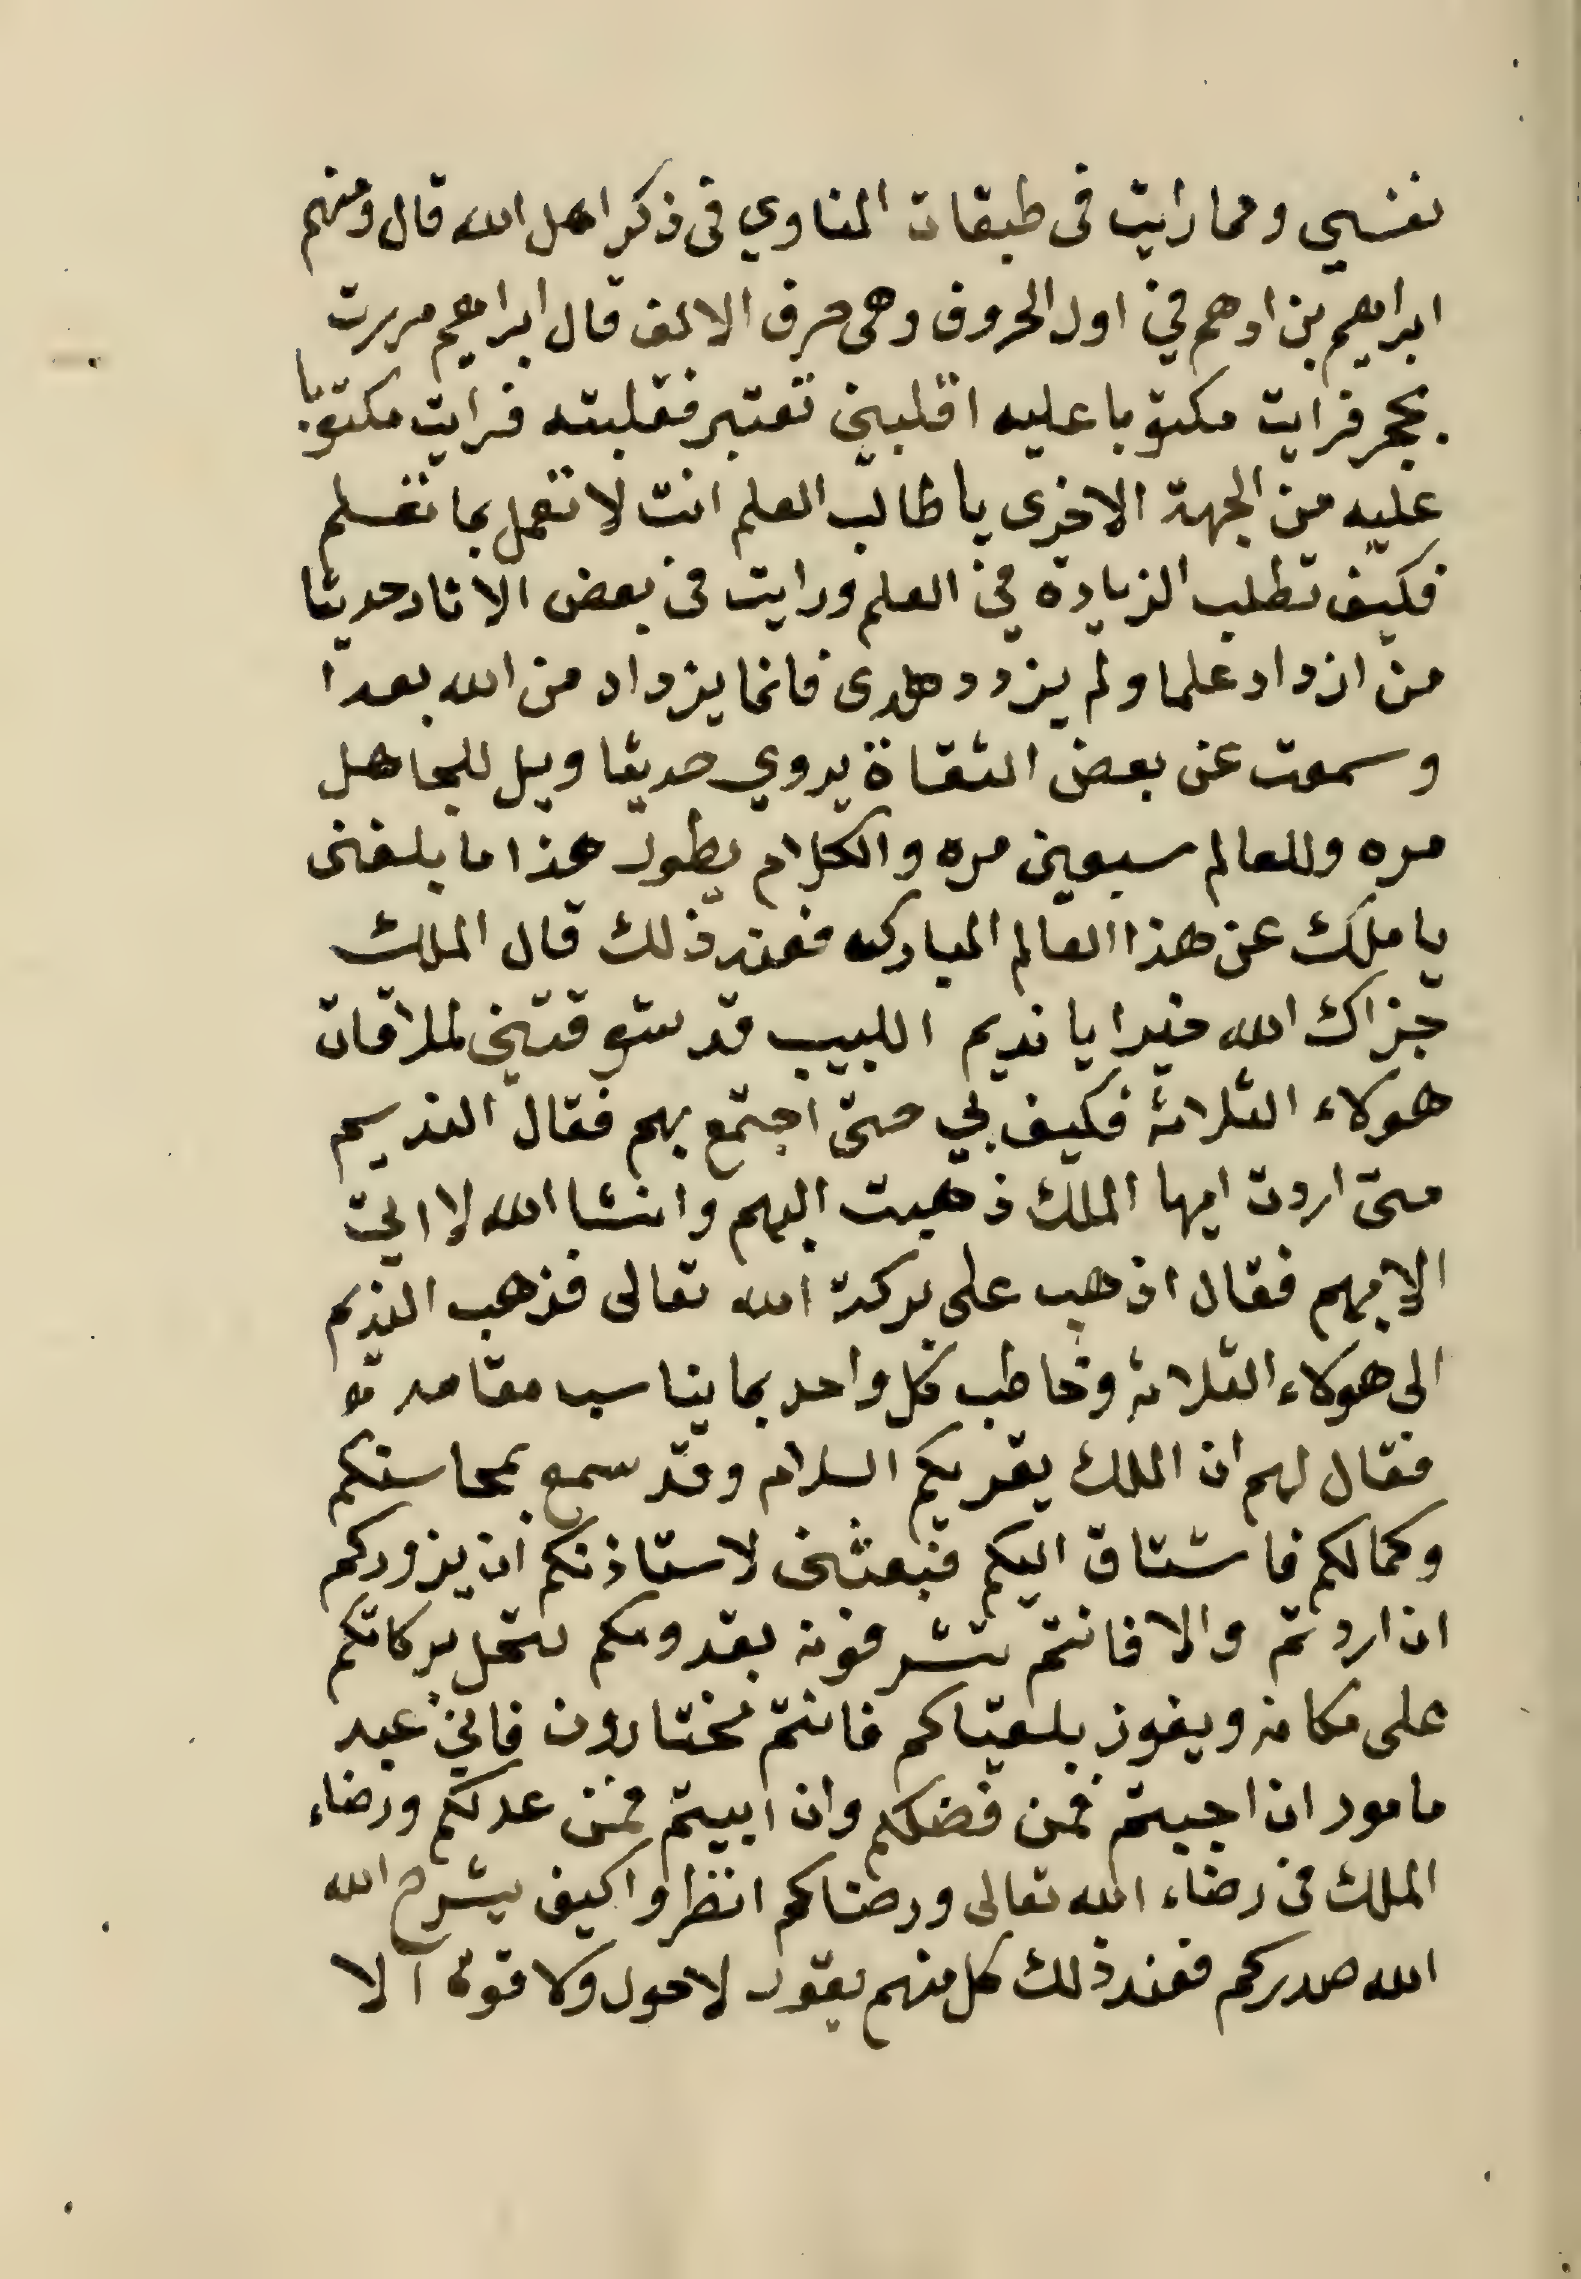 نفسي ومما رايت فى طبقات المناوي فى ذكر اهل الله قال ومنهم
ابراهيم بن ادهم في اول الحروف وهى حرف الالف قال ابراهيم مررت
بحجر فرايت مكتوبا عليه اقلبني تعتبر فقلبته فرايت مكتوبا
عليه من الجهة الاخرى يا طالب العلم انت لا تعمل بما تعلم
فكيف تطلب الزيادة في العلم ورايت فى بعض الاثار حديثا
من ازداد علما ولم يزدد هدى فانما يزداد من الله بعدا
وسمعت عن بعض الثقاة يروي حديثا ويل للجاهل
مره وللعالم سبعين مره والكلام يطول هذا ما بلغنى
يا ملك عن هذا العالم المبارك فعند ذلك قال الملك
جزاك الله خيرا يا نديم اللبيب قد شوقتني لملاقات
هولاء الثلاثة فكيف لي حتى اجتمع بهم فقال النديم
متى اردت ايها الملك ذهبت اليهم وانشا الله لا اتي
الا بهم فقال اذهب على بركة الله تعالى فذهب النديم
الى هولاء الثلاثة وخاطب كل واحد بما يناسب مقامه
فقال لهم ان الملك يقريكم السلام وقد سمع بمحاسنكم
وكمالكم فاشتاق اليكم فبعثنى لاستاذنكم ان يزوركم
ان اردتم والا فانتم تشرفونه بقدومكم لتحل بركاتكم
على مكانه ويفوز بلقياكم فانتم مختارون فاني عبد
مامور ان اجبتم فمن فضلكم وان ابيتم فمن عدلكم ورضاء
الملك فى رضاء الله تعالى ورضاكم انظروا كيف يشرح الله
الله صدركم فعند ذلك كل منهم يقول لا حول ولا قوة الا